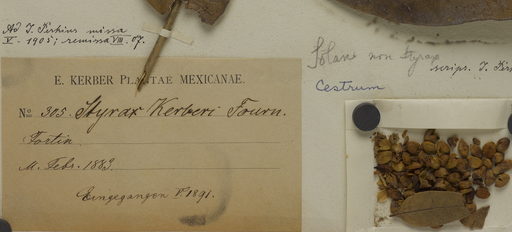 Ad J. Perkins missa
V. 1905; remissa VIII. 07.
Solan. non Styrax
scrips. J. Per
Cestrum
E. KERBER PLANTAE MEXICANAE.
No 305. Styrax Kerberi Fourn.
Fortin
M. Febr. 1883.
Eingegangen V. 1891.